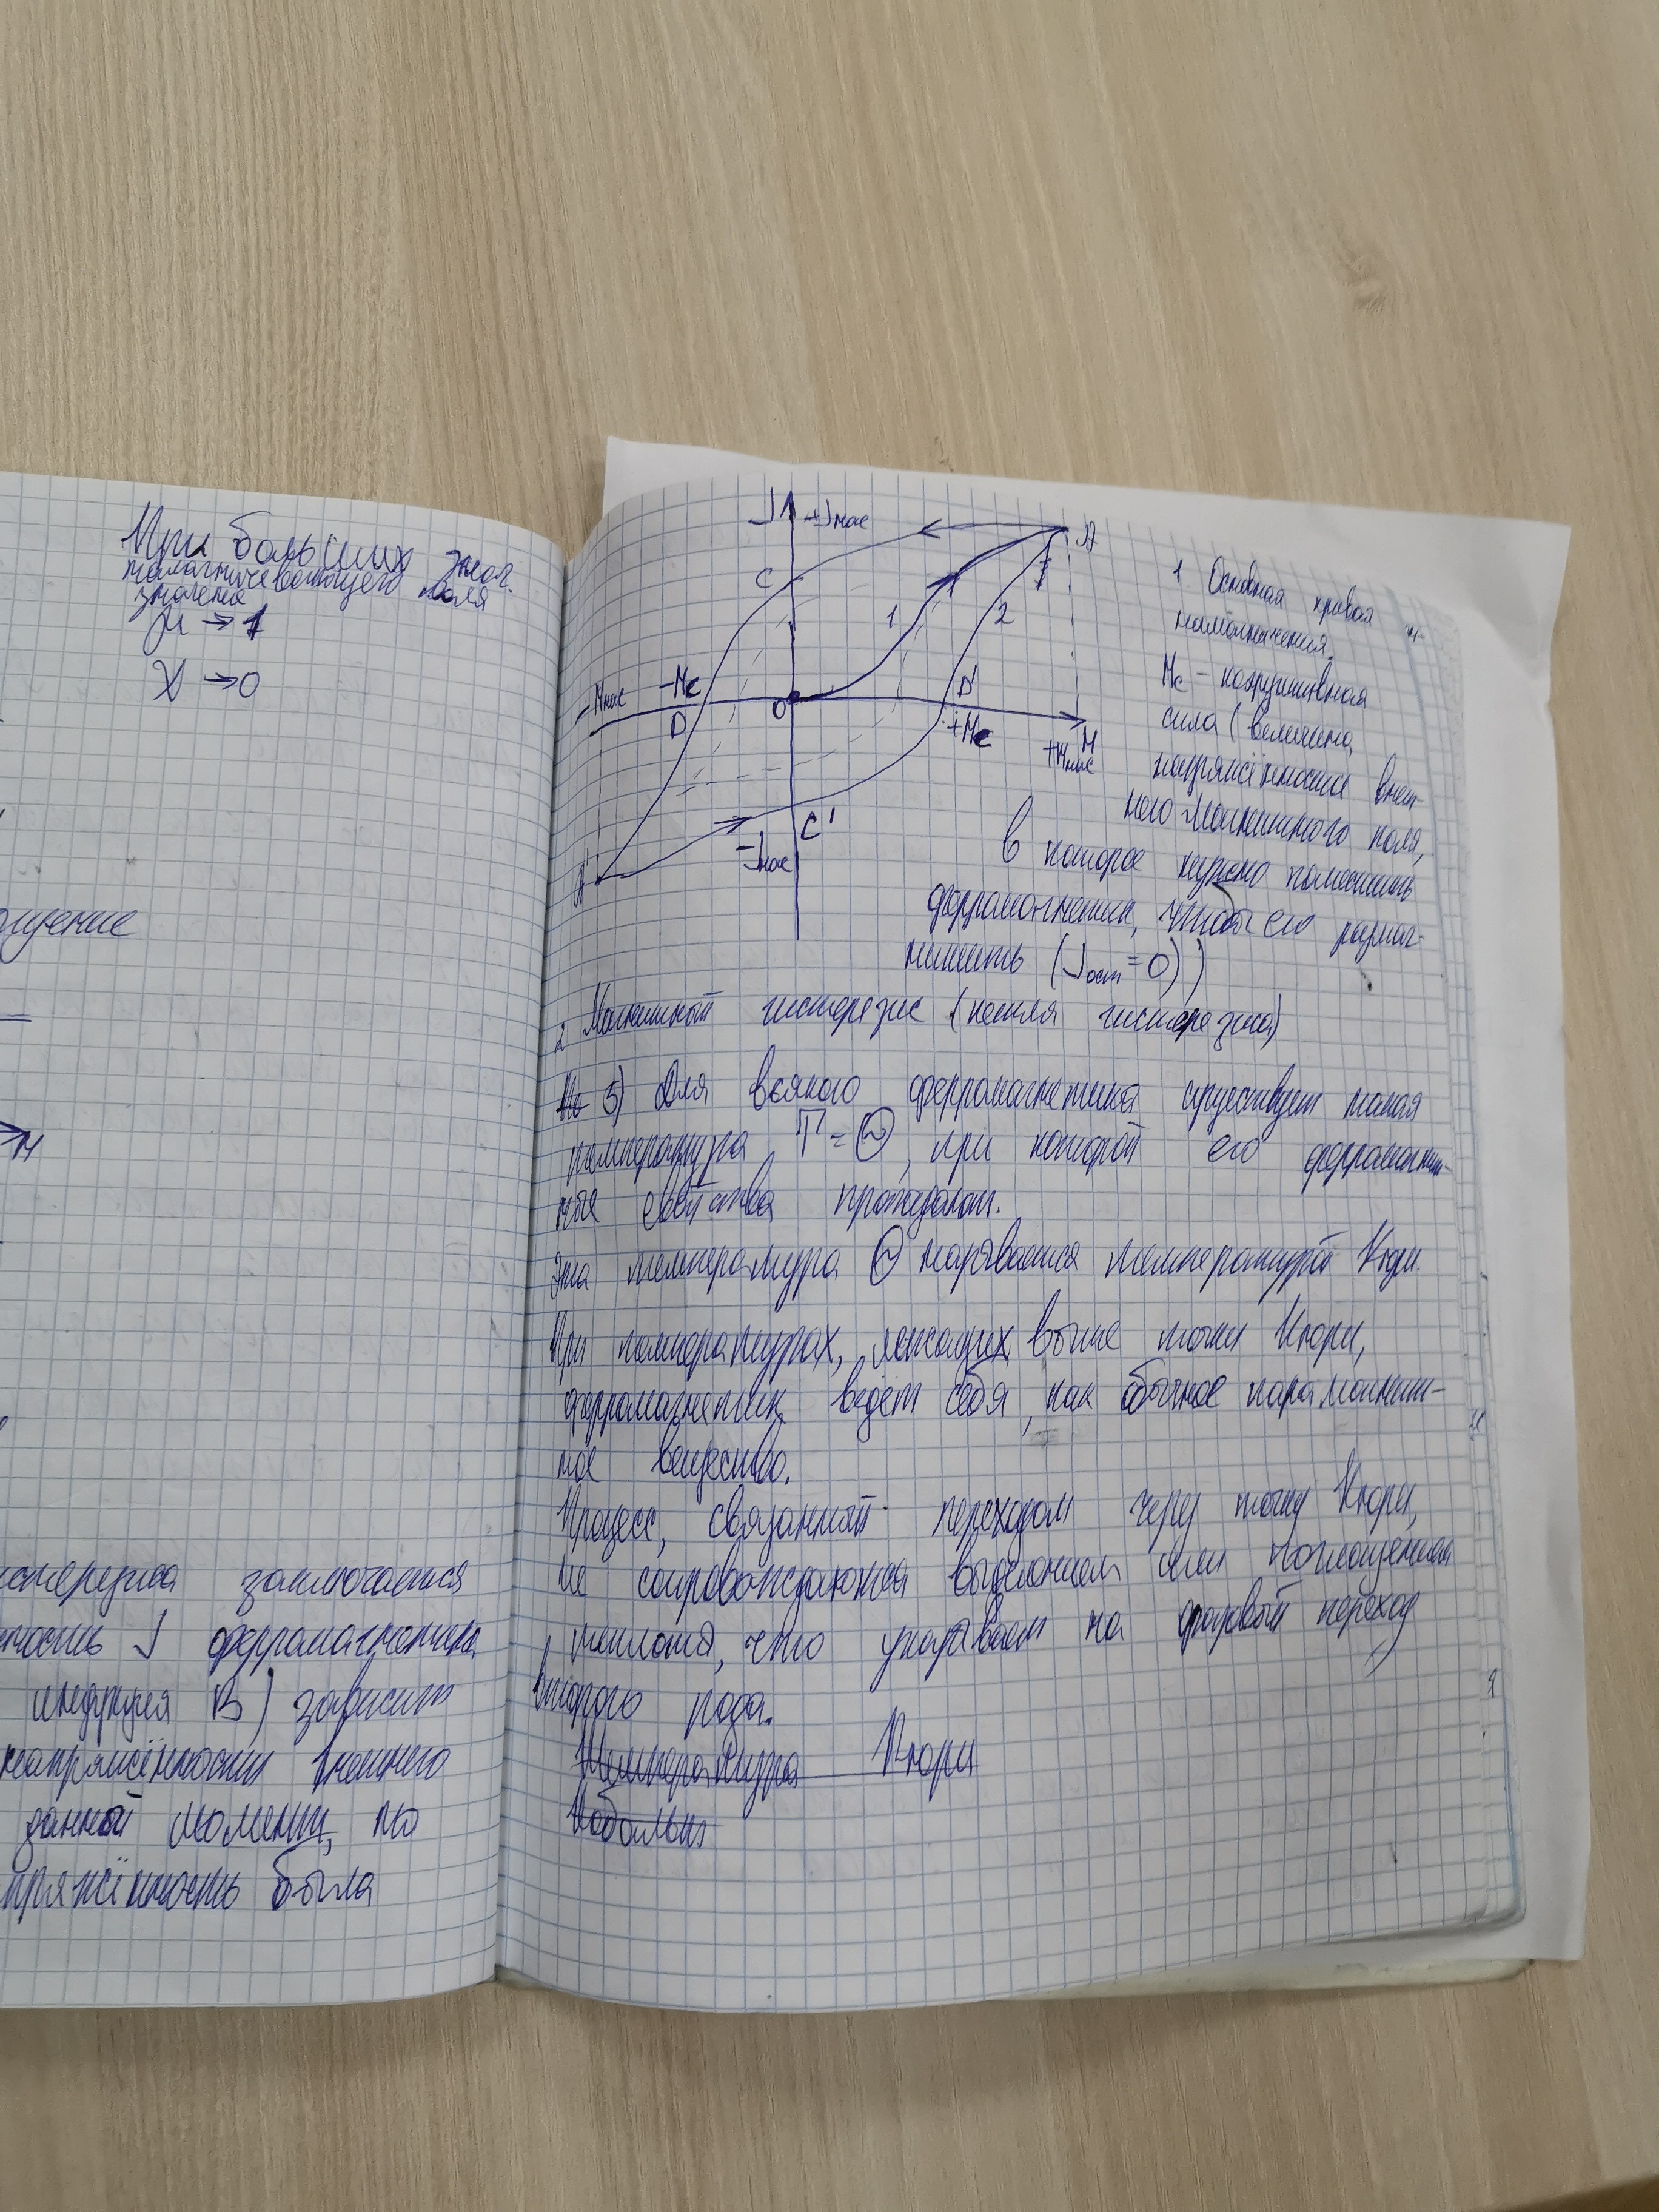 При больших знач.
намагничевающего поля
значение
μ → 1
χ → 0
ощение
H
стерезиса заключается
ность J ферромагнетика
индукция B) зависит
напряжённости внешнего
данный момент, но
пряжённость была
J +Jнас
A
C
1
2
-Hнас -Hc
D
O
D'
+Hc
H
+Hнас
C'
-Jнас
A'
1 Основная кривая
намагничения.
Hc - коэрцитивная
сила (величина
напряжённости внеш-
него магнитного поля,
в которое нужно поместить
ферромагнетик, чтобы его размаг-
нитить (Jост = 0))
2 Магнитный гистерезис (петля гистерезиса)
5) Для всякого ферромагнетика существует такая
температура T = Θ, при которой его ферромагнит-
ные свойства пропадают.
Эта температура Θ называется температурой Кюри.
При температурах, лежащих выше точки Кюри,
ферромагнетик ведёт себя, как обычное парамагнит-
ное вещество.
Процесс, связанный переходом через точку Кюри,
не сопровождаются выделением или поглощением
теплоты, что указывает на фазовый переход
второго рода.
Температура Кюри